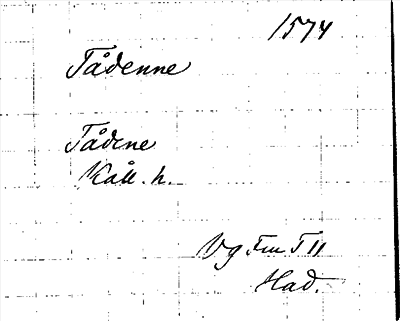 1574
Tådenne
Tådene
Kåll. h.
Vg Fm T 11
Had.